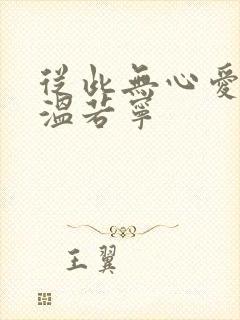 從此無心愛
溫若寧
王翼